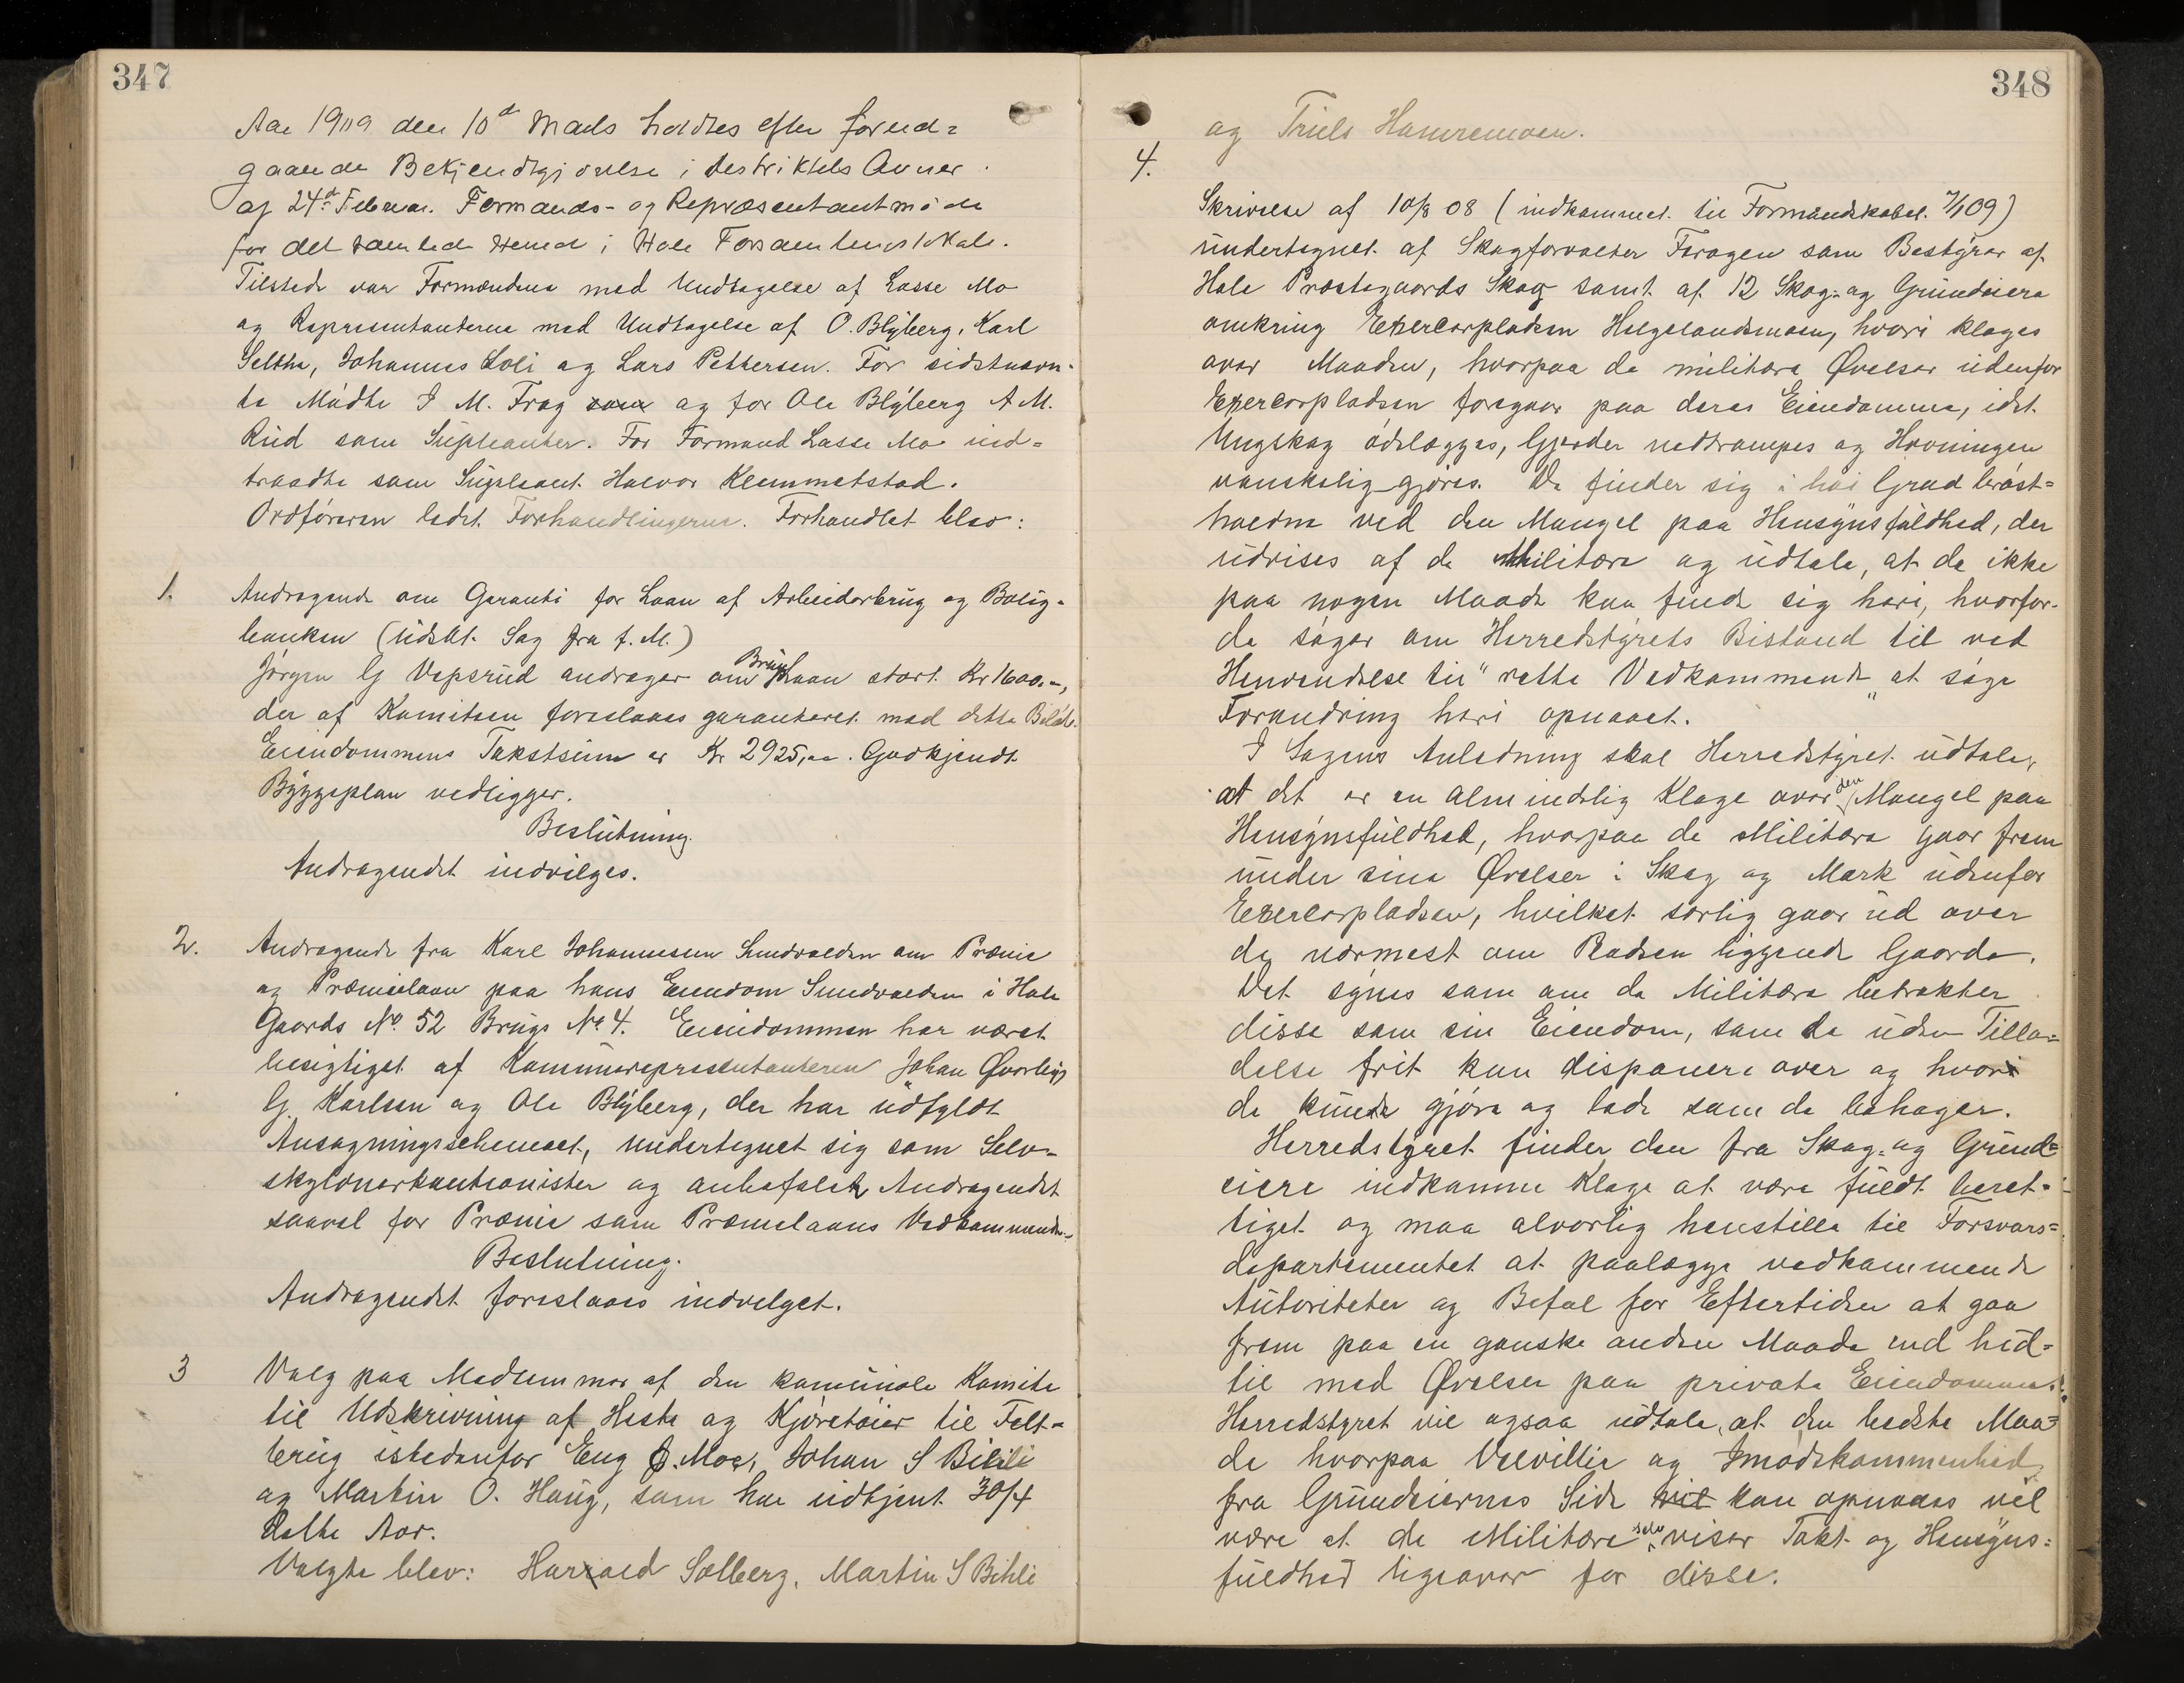 347
Aar 1909 den 10d Marts holdtes efter forud=
gaaende Bekjendtgjørelse i Destriktets Aviser
af 24d Februar. Formands- og Repræsentantmøde
for det samlede Herred i Hole Forsamlingslokale.
Tilstede var Formændene med Undtagelse af Lasse Mo
og Repræsentanterne med Undtagelse af O. Blyberg, Karl
Selthe, Johannes Loli og Lars Pettersen. For sidstnævn-
te Mødte I M. Frog som og for Ole Blyberg A M.
Rud som Supleanter. For Formand Lasse Mo ind=
traadte som Supleant Halvor Klemmetstad.
Ordføreren ledet Forhandlingerne. Forhandlet blev:
1. Andragende om Garanti for Laan af Arbeiderbrug og Bolig-
banken (Udsat Sag fra f. M.)
Jørgen G Vepsrud andrager om Bruglaan stort Kr 1600.-,
der af Komiteen foreslaaes garanteret med dette Beløb.
Eiendommens Takstsum er Kr 2925,00. Godkjendt
Byggeplan vedligger.
Beslutning.
Andragendet indvilges.
2. Andragende fra Karl Johannesen Sundvolden om Præmie
og Præmielaan paa hans Eiendom Sundvolden i Hole
Gaards No. 52 Brugs No. 4. Eiendommen har været
besigtiget af Kommunerepresentanteren Johan
G. Karlsen og Ole Blyberg, der har udfyldt
Ansøgningsschemaet, undertegnet sig som Selv-
skyldnerkautionister og anbefalet Andragendet
saavel for Præmie som Præmielaans Vedkommende.
Beslutning.
Andragendet foreslaaes indvilget.
3 Valg paa Medlemmer af den komunale Komite
til Udskrivning af Heste og Kjøretøier til Felt-
brug istedenfor Eng O. Moe, Johan S Bihli
og Martin O. Haug, som har udtjent 30/4
dette Aar.
Valgte blev: Harald Solberg, Martin S Bihli
348
og Truls Hamremoen.
4.
Skrivelse af 10/8 08 (indkommet til Formandskabet 7/1 09)
undertegnet af Skogforvalter Foragen som Bestyrer af
Hole Præstegaards Skog samt af 12 Skog- og Grundeiere
omkring Exercerpladsen Helgelandsmoen, hvori klages
over Maaden, hvorpaa de militære Øvelser udenfor
Exercerpladsen foregaar paa deres Eiendomme, idet
Ungskog ødelægges, Gjerder nedtrampes og Havningen
vanskelig-gjøres. De finder sig i høi Grad brøst-
holdne ved den Mangel paa Hensynsfuldhed, der
udvises af de Militære og udtale, at de ikke
paa nogen Maade kan finde sig heri, hvorfor
de søger om Herredstyrets Bistand til ved
Henvendelse til "rette Vedkommende" at søge
Forandring heri opnaaet.
I Sagens Anledning skal Herredstyret udtale,
at det er en almindelig Klage over den Mangel paa
Hensynsfuldhed, hvorpaa de Militære gaar frem
under sine Øvelser i Skog og Mark udenfor
Exercerpladsen, hvilket særlig gaar ud over
de nærmest om Pladsen liggende Gaarde.
Det synes som om de Militære betrakter
disse som sin Eiendom, som de uden Tilla=
delse frit kan disponere over og hvor
de kunde gjøre og lade som de behager.
Herredstyret finder den fra Skog- og Grund=
eiere indkomne Klage at være fuldt beret-
tiget og maa alvorlig henstille til Forsvars=
departementet at paalægge vedkommende
Autoriteter og Befal for Eftertiden at gaa
frem paa en ganske anden Maade end hid-
til med Øvelser paa private Eiendomme.
Herredstyret vil ogsaa udtale, at den bedste Maa=
de hvorpaa Velvillie og Imødekommenhed
fra Grundeiernes Side vil kan opnaaes vil
være at de Militære selv viser Takt og Hensyns=
fuldhed ligeover for disse.